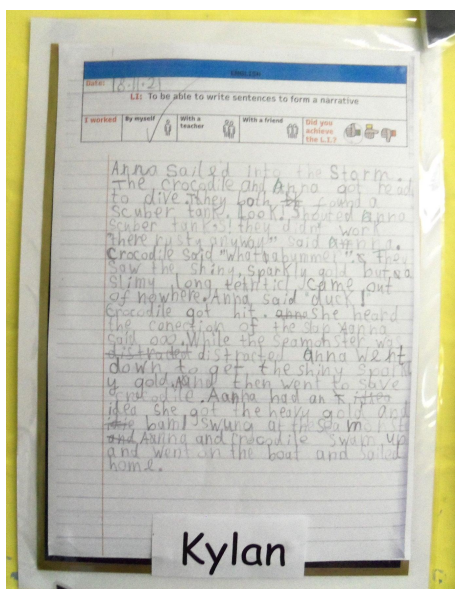 ENGLISH
Date: 18.11.21
LI: To be able to write sentences to form a narrative
I worked By myself With a teacher With a friend Did you achieve the L.I.?
Anna Sailed into the Storm.
The crocodile and Anna got ready
to dive. They both found a
scuber tank. Look! Shouted Anna
scuber tanks! they didnt work
"there rusty anyway" said Anna.
Crocodile said "what a bummer". They
saw the shiny, sparkly gold but a
slimy long came out
of nowhere. Anna said "duck!
Crocodile got hit. she heard
the conection of the slap Aanna
said ooo. While the seamonster was
distracted Anna went
down to get the shiny
y gold. And then went to save
crocodile. Aanna had an
idea she got the heavy gold and
bam! swung at the
Aanna and crocodile swam up
and went on the boat and sailed
home.
Kylan